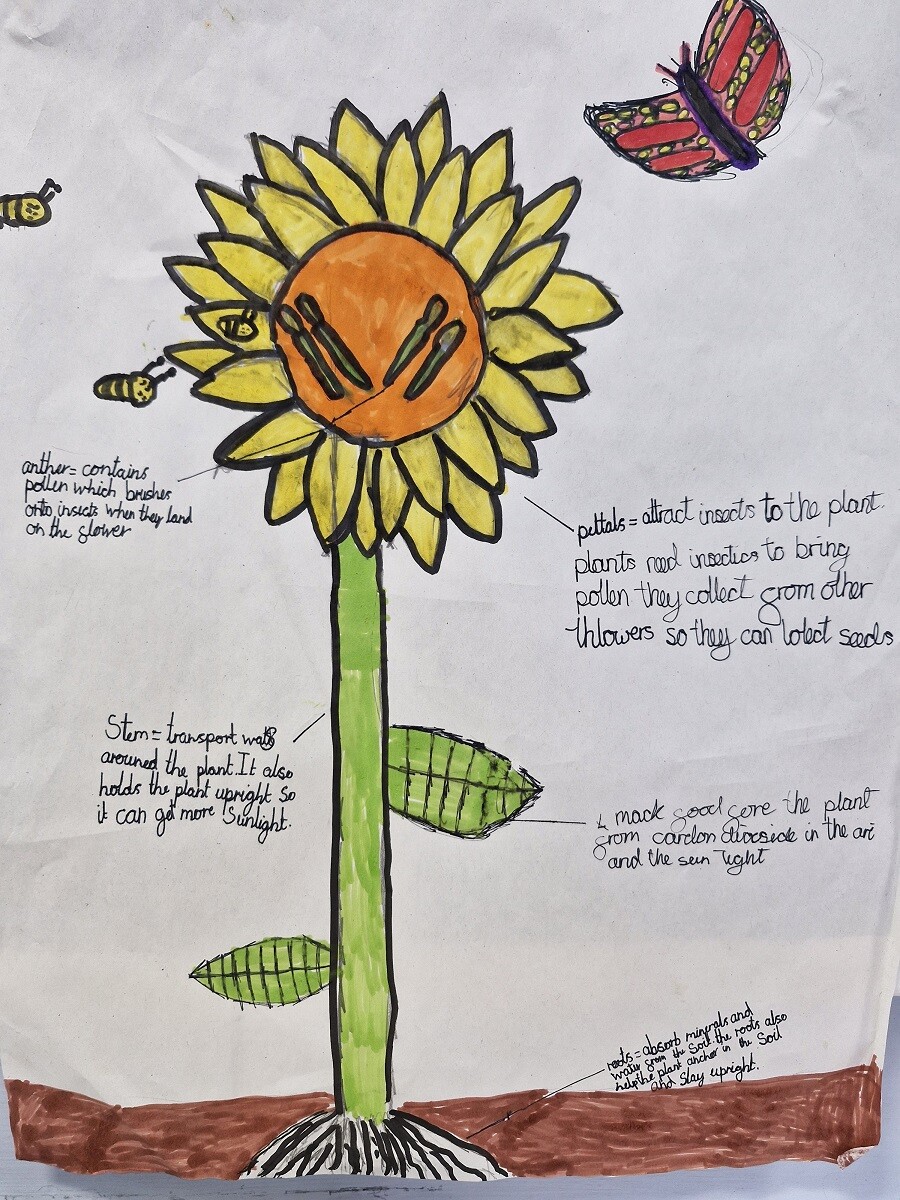 anther = contains
pollen which brushes
onto insects when they land
on the glower
pettals = attract insects to the plant.
plants need insectics to bring
pollen they collect grom other
thlowers so they can lolect seeds
Stem = transport
arouned the plant. It also
holds the plant upright so
it can get more sunlight.
mack good gore the plant
grom cardon dioxside in the ari
and the sun light
roots = absorb minerals and
water grom the soil. the roots also
help the plant anchor in the soil
and stay upright.